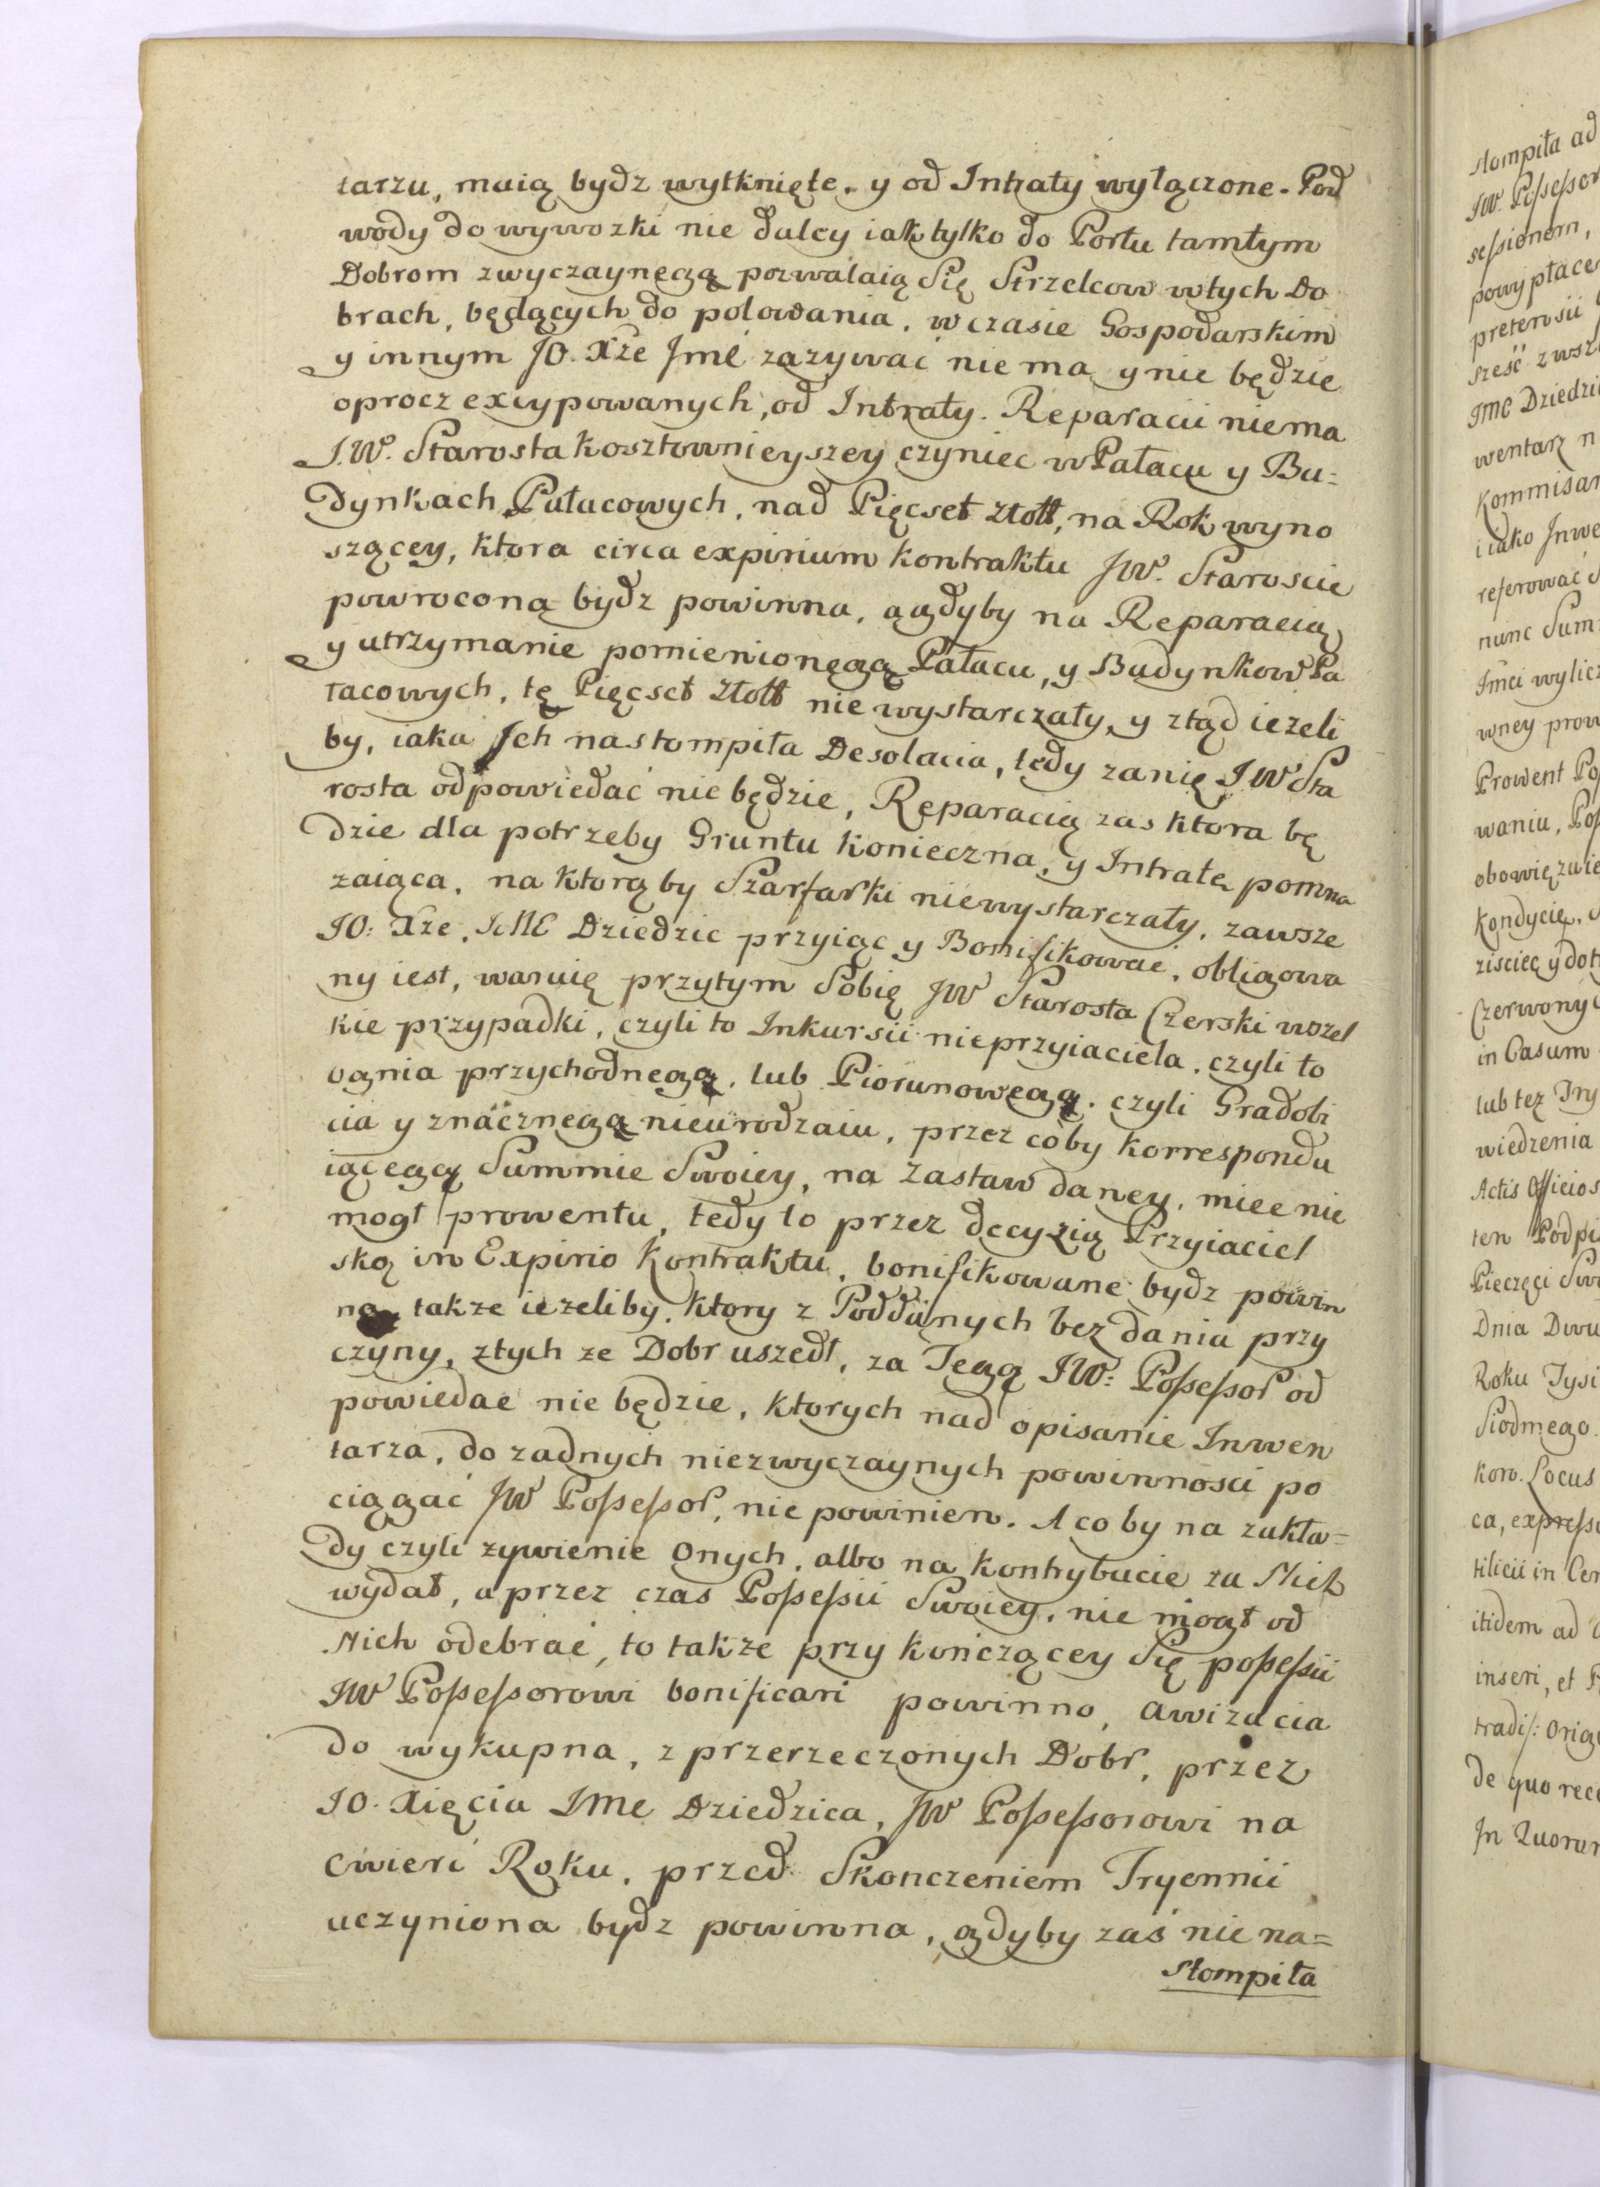 tarzu, maią bydz wytknięte. y od Intraty wyłączone. Pod
wody do wywozki nie daley iak tylko do Portu tamtym
Dobrom zwyczaynęgą pozwalaią Się Strzelcow wtych Do
brach, będących do polowania. w czasie Gospodarskim
y innym JO. Xże Jmć zazywać nie ma y nie będzie
oprocz excypowanych, od Intraty. Reparacii niema
J.W. Starosta kosztownieyszey czyniec w Pałacu y Bu=
dynkach Pałacowych, nad Pięcset złott, na Rok wyno
szącey, ktora circa expirium kontraktu JW. Staroscie
powroconą bydz powinna, agdyby na Reparacią
y utrzymanie pomienionęgą Pałacu, y Budynkow Pa
łacowych, tę Pięcset złott nie wystarczały, y ztąd ieżeli
by, iaka Jch nastompiła Desolacia, tędy zanię J W Sta
rosta odpowiedać nie będzie, Ręparacią zas ktora bę
dzie dla potrzeby Gruntu konieczna, y Intratę pomna
zaiąca, na ktorą by Szarfarki niewystarczały, zawsze
JO: Xże. JMC Dziedzic przyiąc y Bonifikowac, obligowa
ny iest, waruię przytym Sobię JW Starosta Czerski wszel
kie przypadki, czyli to Inkursii nieprzyiaciela, czyli to
ognia przychodnęgą, lub Piorunowęgą. czyli Gradobi
cia y znacznęgą nieurodzaiu, przez coby korrespondu
iącęgą Summie Swoiey, na zastaw daney, miec nie
mogł prowentu, tedy to przez decyzią Przyiaciel
ską in Expirio Kontraktu, bonifikowane bydz powin
no takze iezeliby, ktory z Poddanych bez dania przy
czyny, ztych ze Dobr uszedł, za Tegą JW: Possessor od
powiedac nie będzie, ktorych nad opisanie Inwen
tarza, do zadnych niezwyczaynych powinnosci po
ciągać JW Possessor, nie powinien. A co by na zakła=
dy czyli zywienie onych, albo na kontrybucie za Nich
wydał, a przez czas Possessii Swoiey, nie mogł od
Nich odebrać, to takze przy kończącey Się possessii
JW Possessorowi bonificari powinno, awizacia
do wykupna, z przerzeczonych Dobr, przez
JO. Xięcia Jmc Dziedzica, JW Possessorowi na
cwierć Roku, przed Skonczeniem Tryennii
uczyniona bydz powinna, gdyby zaś nie na=
stompiła
stompiła ad
JW. Possessor
sessionem,
powypłace
pretensii
sześć zwsz
JMC Dziedzi
wentarz n
Kommisar
iiako Jnwe
referować
nunc Sum
Jmci wylicz
wney prow
Prowent Po
waniu, Pos
obowięzuie
Kondycię,
ziscieę y dot
Czerwonyc
in Casum
lub tez Try
wiedzenia
Actis Officios
ten Podpi
Pieczęci Sw
Dnia Dwu
Roku Tysi
Siodmego.
kow. Locus
ca, expressi
tilicii in Cer
itidem ad
inseri, et
tradis: Orig
de quo rec
Jn Quorum